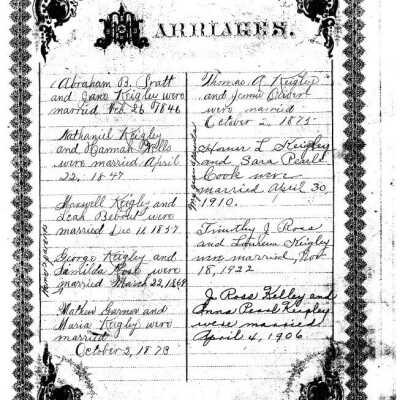 MARRIAGES.
Abraham B. Pratt
and Jane Keigley were
married Feb 26 1846
Nathaniel Keigley
and Hannah Wells
were married April
22, 1847
Maxwell Keigley and
Leah Bebout were
married Dec 11 1857
George Keigley and
Samilda were
married March 22, 1868
Mathew Garner and
Maria Keigley were
married
October 2, 1873
Thomas A Keigley
and Jennie
were married
October 2, 1875
Homer L Keigley
and Sara Pearl
Cook were
married April 30,
1910.
Timothy J. Ross
and Keigley
were married, Nov
18, 1922
J. Ross Kelley and
Anna Pearl Keigley
were married
April 4, 1906